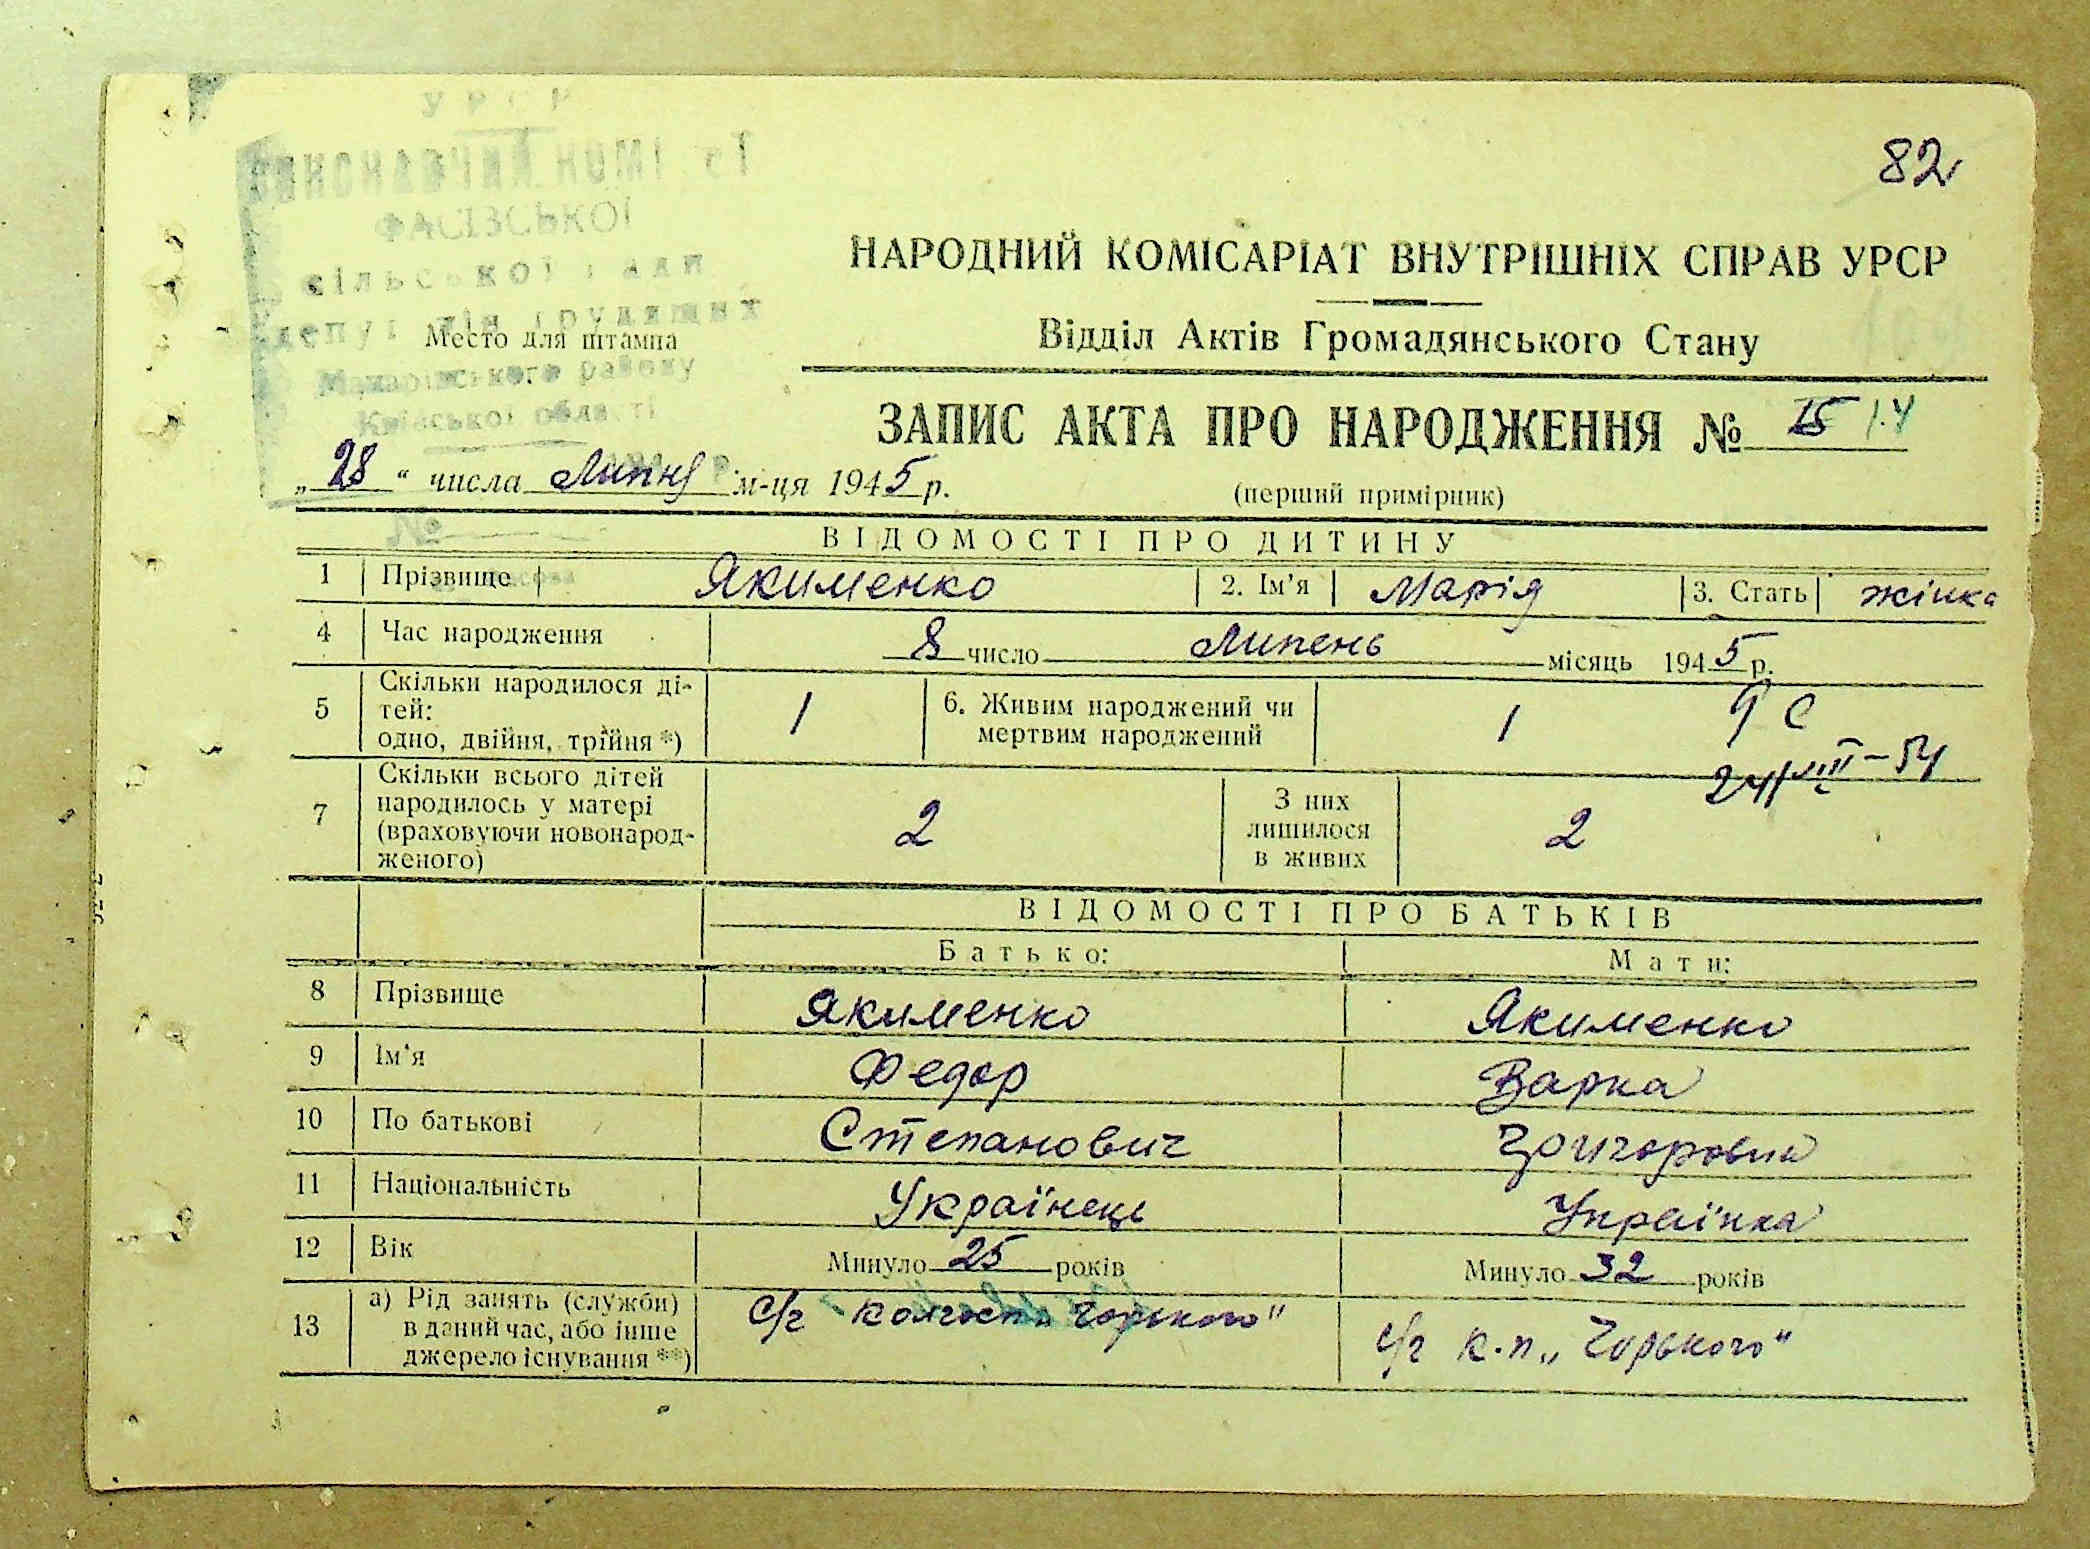 УРСР
ВИКОНАВЧИЙ КОМІТЕТ
ФАСІВСЬКОЇ
сільської ради
депутатів трудящих
Макарівського району
Київської області
Место для штампа
№
82
НАРОДНИЙ КОМІСАРІАТ ВНУТРІШНІХ СПРАВ УРСР
Відділ Актів Громадянського Стану
ЗАПИС АКТА ПРО НАРОДЖЕННЯ № 15 14
„28“ числа Липня м-ця 1945 р.
(перший примірник)
ВІДОМОСТІ ПРО ДИТИНУ
1 Прізвище Якименко 2. Ім'я Марія 3. Стать жінка
4 Час народження 8 число Липень місяць 1945 р.
5 Скільки народилося ді-
тей:
одно, двійня, трійня *) 1
6. Живим народжений чи
мертвим народжений 1
24/VIII-54
7 Скільки всього дітей
народилось у матері
(враховуючи новонарод-
женого) 2
З них
лишилося
в живих 2
ВІДОМОСТІ ПРО БАТЬКІВ
Батько: Мати:
8 Прізвище Якименко Якименко
9 Ім'я Федор Варка
10 По батькові Степанович
11 Національність Українець Українка
12 Вік Минуло 25 років Минуло 32 років
13 а) Рід занять (служби)
в даний час, або інше
джерело існування **)
с/г колгосп Горького"
с/г к.п „Горького"